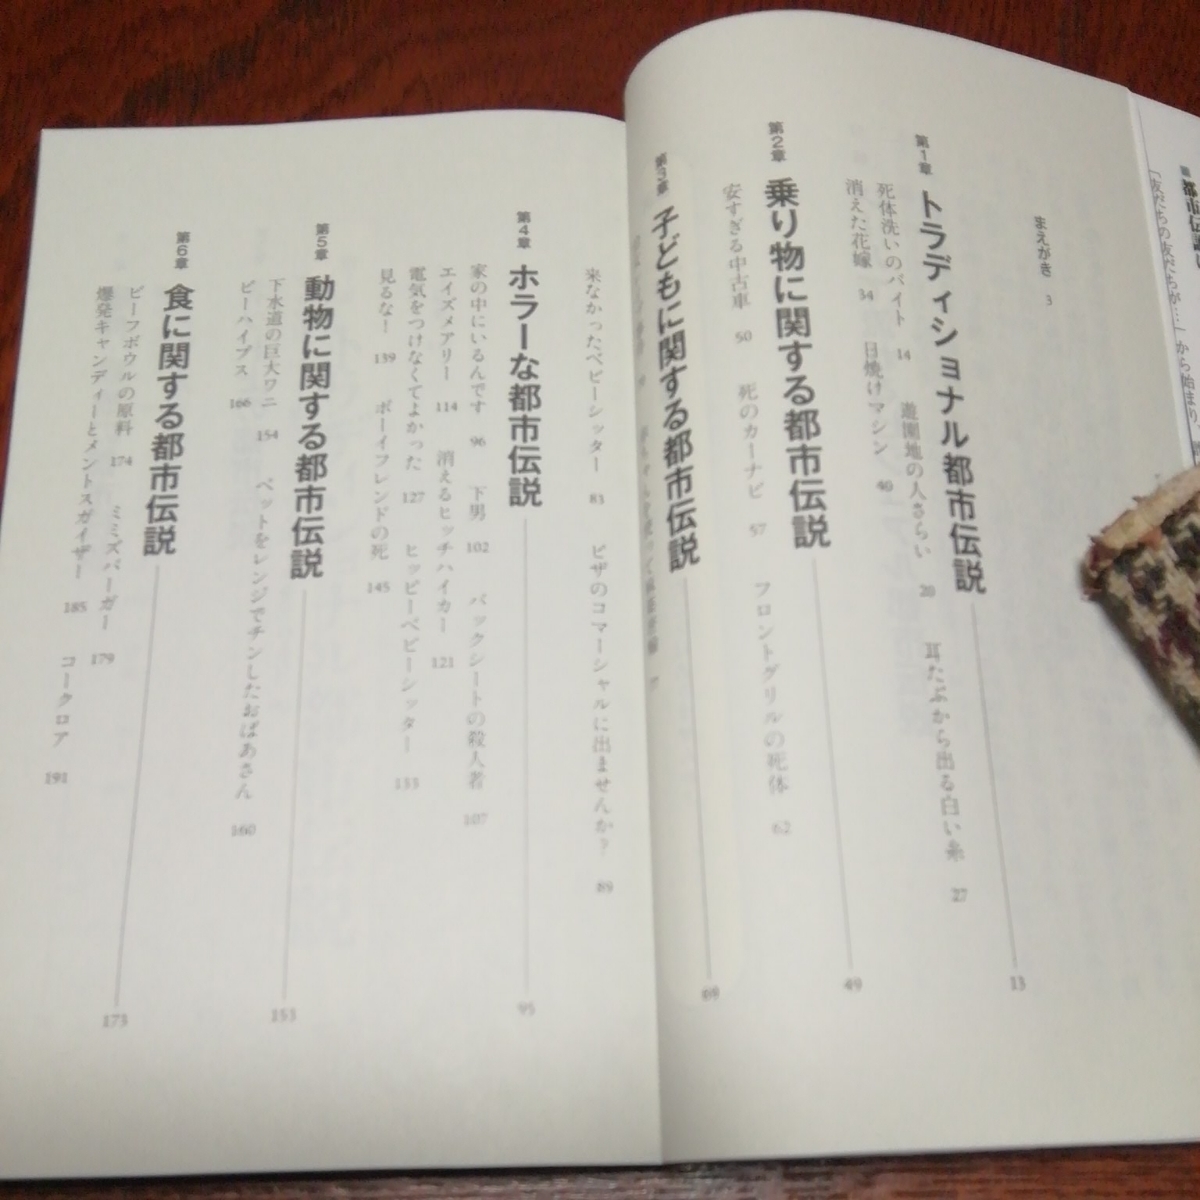 都市伝説
「友だちの友だちが…」から始まり、
まえがき 3
第1章 トラディショナル都市伝説 13
死体洗いのバイト 14 遊園地の人さらい 20 耳たぶから出る白い糸 27
消えた花嫁 34 日焼けマシン 40
第2章 乗り物に関する都市伝説 49
安すぎる中古車 50 死のカーナビ 57 フロントグリルの死体 62
第3章 子どもに関する都市伝説 69
来なかったベビーシッター 83 ピザのコマーシャルに出ませんか? 89
第4章 ホラーな都市伝説 95
家の中にいるんです 96 下男 102 バックシートの殺人者 107
エイズメアリー 114 消えるヒッチハイカー 121
電気をつけなくてよかった 127 ヒッピーベビーシッター 133
見るな! 139 ボーイフレンドの死 145
第5章 動物に関する都市伝説 153
下水道の巨大ワニ 154 ペットをレンジでチンしたおばあさん 160
ビーハイブス 166
第6章 食に関する都市伝説 173
ビーフボウルの原料 174 ミミズバーガー 179
爆発キャンディーとメントスガイザー 185 コークロア 191